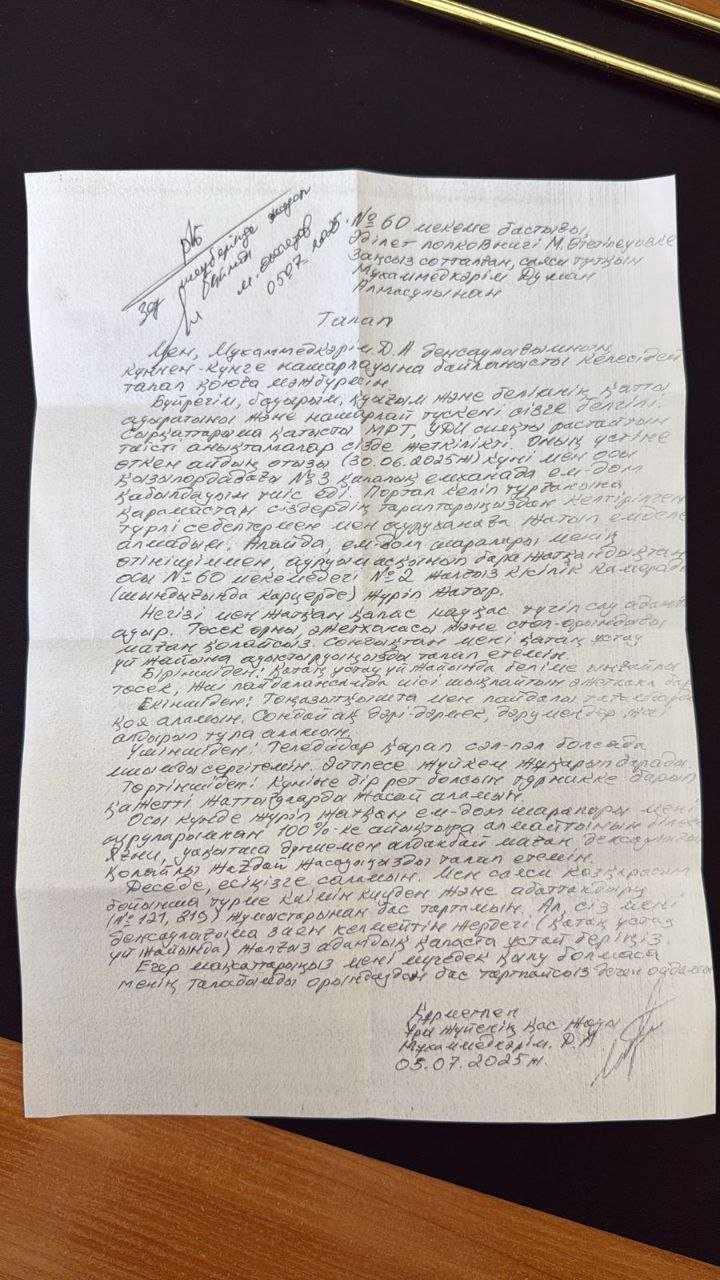 Заң шеңберінде жауап
05.07.2025.
№ 60 мекеме бастығы,
Әділет полковнигі М.
Заңсыз сотталған, саяси тұтқын
Мұхаммедкәрім Думан
Алмасұлынан
Талап
Мен, Мұхаммедкәрім.Д.А денсаулығымның
күннен-күнге нашарлауына байланысты келесідей
талап қоюға мәжбүрмін.
Бүйрегім, бауырым, қуығым және белімнің қатты
ауыратыны және нашарлай түскені сізге белгілі.
Сырқаттарыма қатысты МРТ, УДИ сияқты растайтын
тиісті анықтамалар сізде жеткілікті. Оның үстіне
өткен айдың отызы (30.06.2025ж) күні мен осы
Қызылордадағы № 3 қалалық емханада ем-дом
қабылдауым тиіс еді. Портал келіп тұрғанына
қарамастан сіздердің тараптарыңыздан келтірілген
түрлі себептермен мен ауруханаға жатып емделе
алмадым. Алайда, ем-дом шаралары менің
өтінішіммен, ауруым асқынып бара жатқандықтан
осы № 60 мекемедегі № 2 жалғыз кісілік камерада
(шындығында карцерде) жүріп жатыр.
Негізі мен жатқан қапас науқас түгіл сау адамға
ауыр. Төсек орны, әжетханасы және стол-орындығы
маған қолайсыз. Сондықтан мені қатаң ұстау
үй жайына ауыстыруыңызды талап етемін.
Біріншіден: Қатаң ұстау үй жайында беліме ыңғайлы
төсек, жиі пайдалансамда иісі шықпайтын әжетхана бар.
Екіншіден: Тоңазытқышта мен пайдалы тағамдарды
қоя аламын. Сондай ақ дәрі-дәрмек, дәрумендер
алдырып тұра аламын.
Үшіншіден: Теледидар қарап сәл-пәл болсада
миымды сергітемін. Әйтпесе жүйкем жұқарып барады.
Төртіншіден: Күніне бір рет болсын турникке барып
қажетті жаттығуларды жасай аламын.
Осы күнде жүріп жатқан ем-дом шаралары мені
ауруларымнан 100%-ке айықтыра алмайтынын
Яғни, уақытша әрнемен алдақбай маған денсаулығыма
қолайлы жағдай жасауыңызды талап етемін.
Деседе, есіңізге саламын. Мен саяси көзқарасым
бойынша түрме киімін киюден және абаттандыру
(№ 121, 819) жұмыстарынан бас тартамын. Ал, сіз мені
денсаулығыма зиен келмейтін жердегі (қатаң ұстау
үй жайында) жалғыз адамдық қапаста ұстай беріңіз.
Егер мақсаттарыңыз мені мүгедек қылу болмаса
менің талабымды орындаудан бас тартпайсыз деген ойдамын
Құрметпен
Ұры жүйенің қас жауы
Мұхаммедкәрім. Д.А
05.07.2025ж.